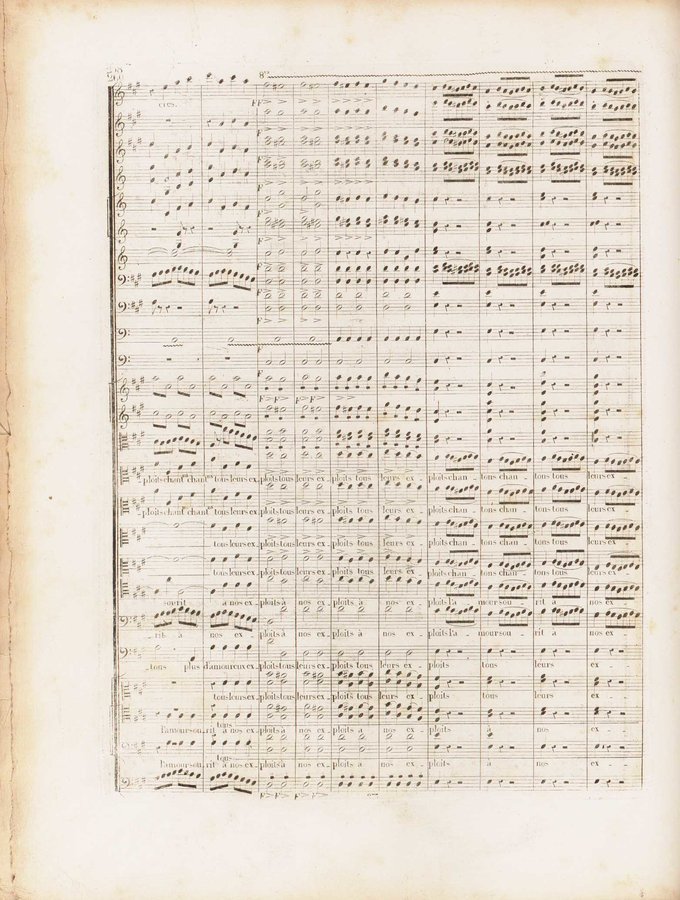 8ª
cies.
FF > > > >
ploits chant chant tous leurs ex_ ploits tous leurs ex_ ploits tous leurs ex_ ploits chan_ tons chan_ tons tous leurs ex_
ploits chant chant tous leurs ex_ ploits tous leurs ex_ ploits tous leurs ex_ ploits chan_ tons chan_ tons tous leurs ex_
tous leurs ex_ ploits tous leurs ex_ ploits tous leurs ex_ ploits chan_ tons chan_ tons tous leurs ex_
tous leurs ex_ ploits tous leurs ex_ ploits tous leurs ex_ ploits chan_ tons chan_ tons tous leurs ex_
sourit à nos ex_ ploits à nos ex_ ploits à nos ex_ ploits l'a_ mour sou_ rit à nos ex_
_rit à nos ex_ ploits à nos ex_ ploits à nos ex_ ploits l'a_ mour sou_ rit à nos ex_
_tons plus d'amoureux ex_ ploits tous leurs ex_ ploits tous leurs ex_ ploits tous leurs ex_
tous leurs ex_ ploits tous leurs ex_ ploits tous leurs ex_ ploits tous leurs ex_
tous
l'amour sou_ rit à nos ex_ ploits à nos ex_ ploits à nos ex_ ploits à nos ex_
tous
l'amour sou_ rit à nos ex_ ploits à nos ex_ ploits à nos ex_ ploits à nos ex_